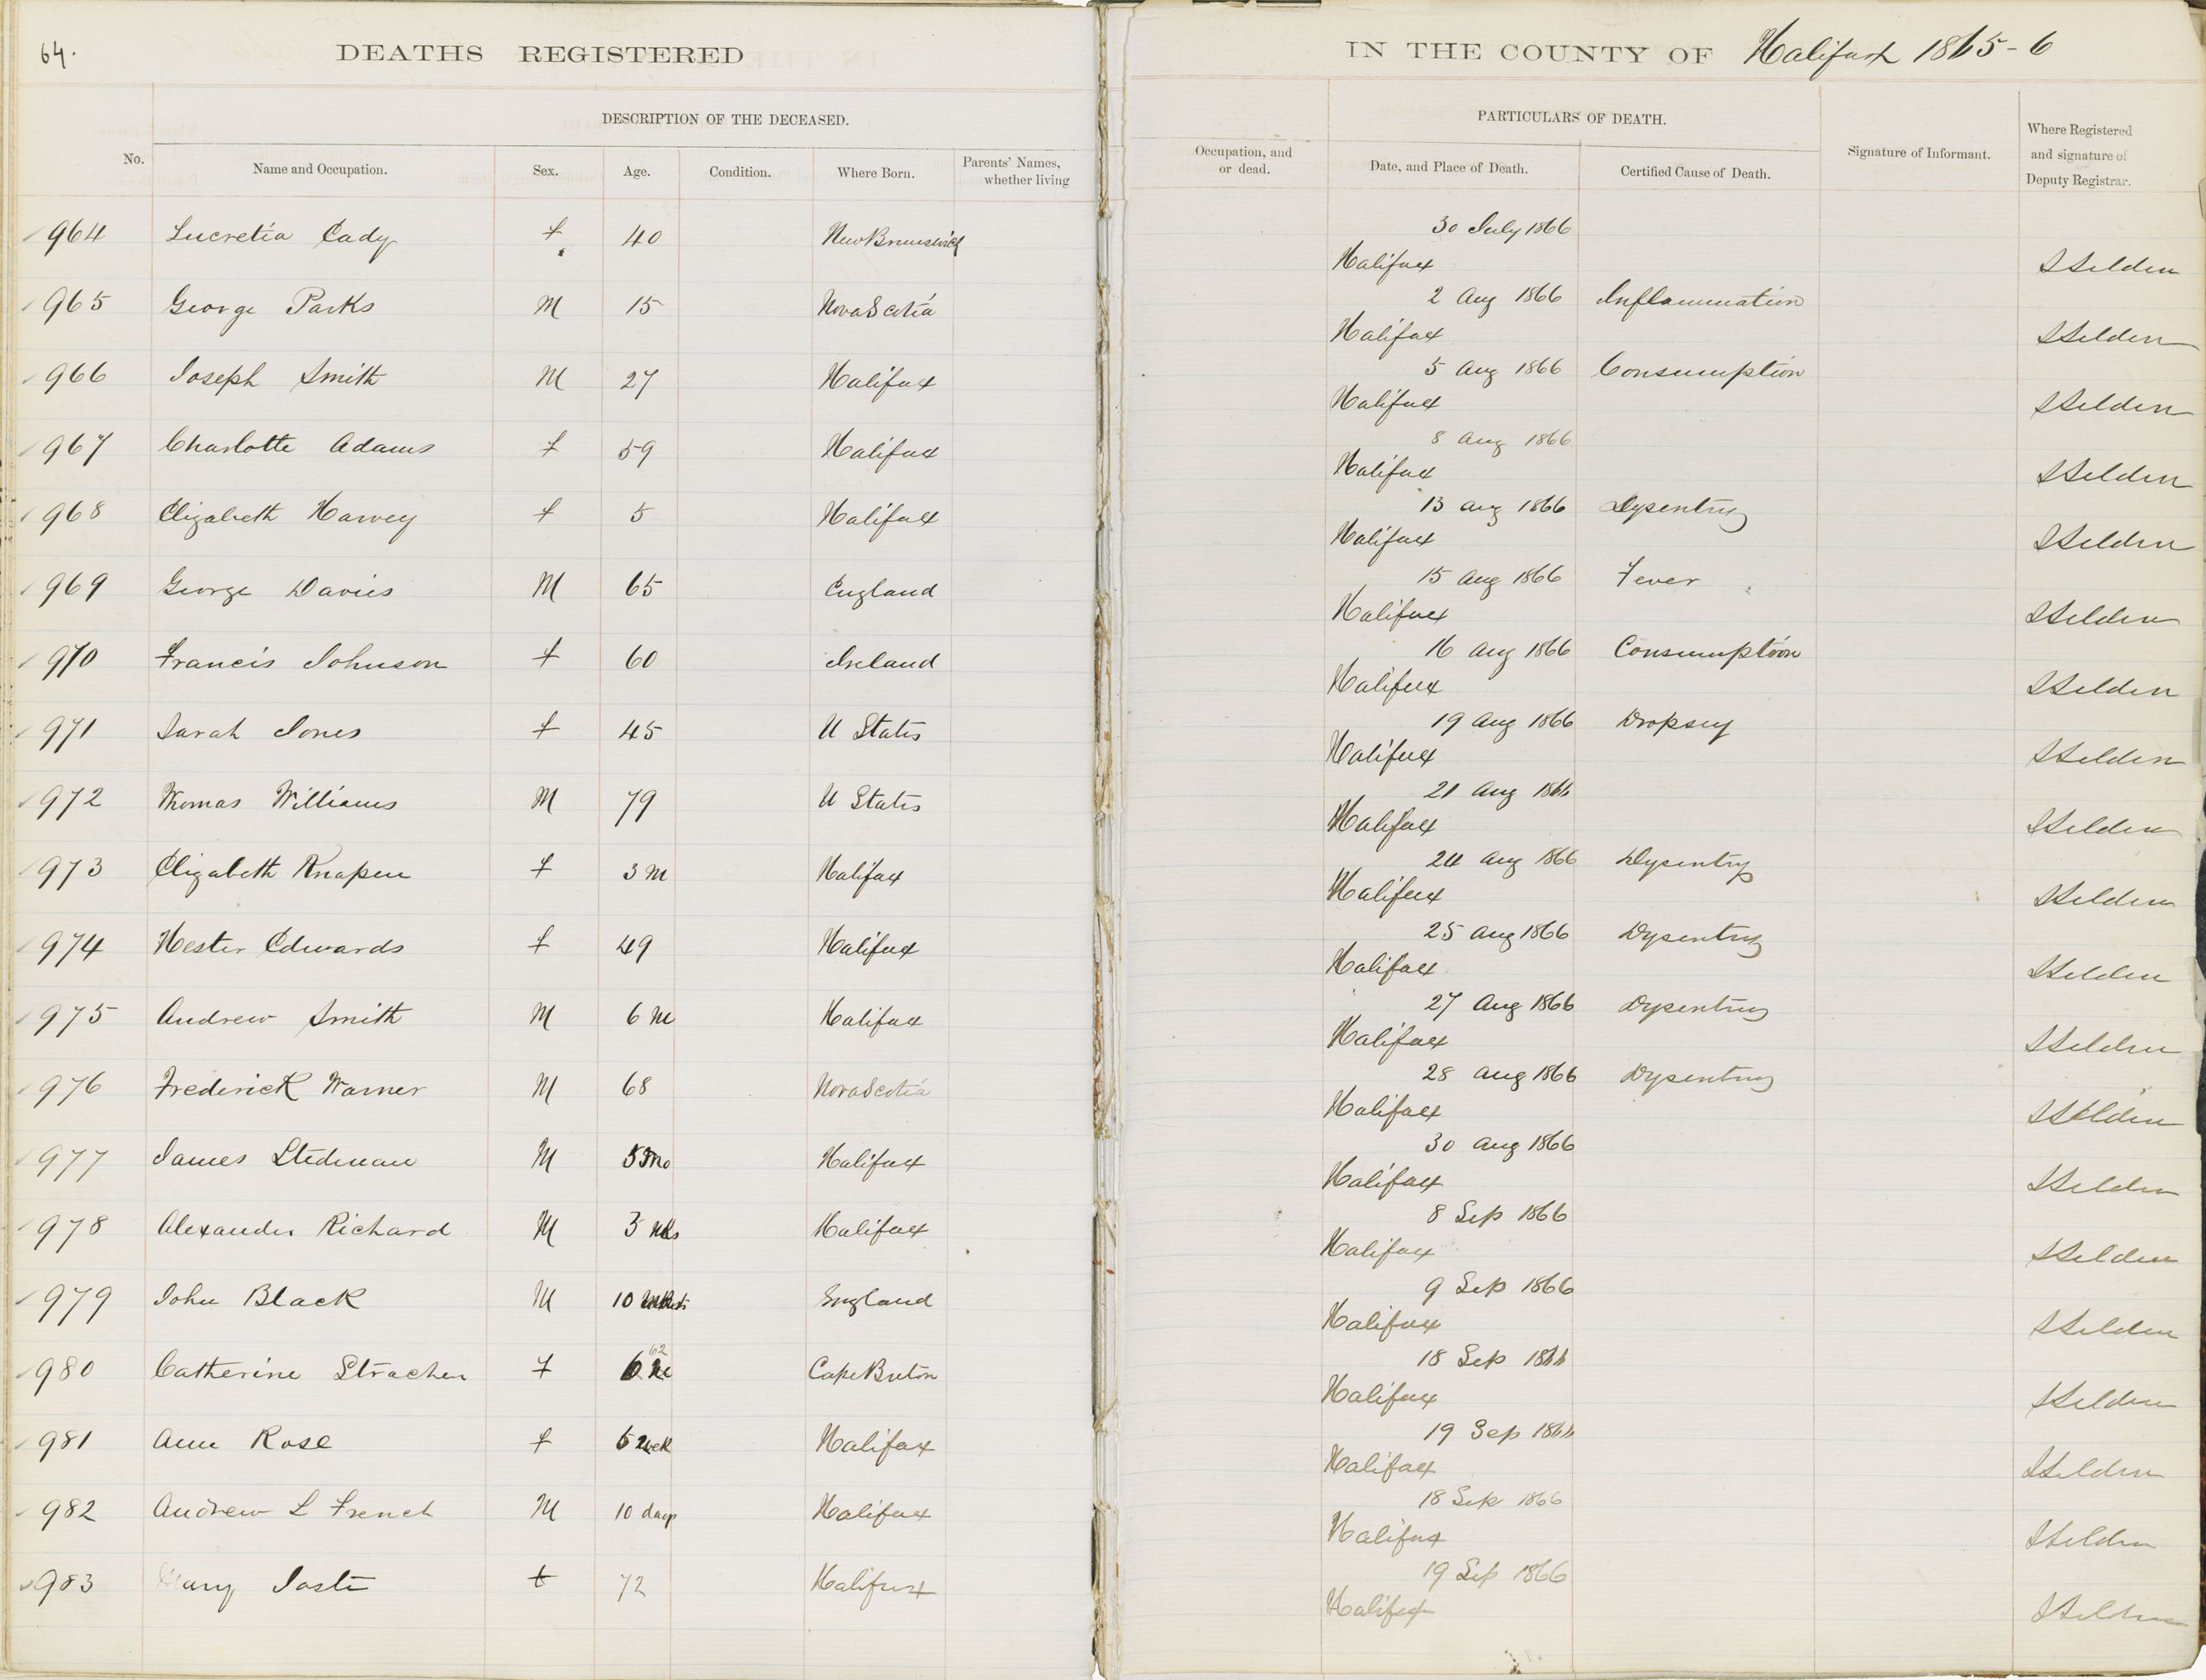 64.
DEATHS REGISTERED
IN THE COUNTY OF Halifax 1865-6
DESCRIPTION OF THE DECEASED.
PARTICULARS OF DEATH.
No.
Name and Occupation.
Sex.
Age.
Condition.
Where Born.
Parents' Names,
whether living
Occupation, and
or dead.
Date, and Place of Death.
Certified Cause of Death.
Signature of Informant.
Where Registered
and signature of
Deputy Registrar.
964 Lucretia Cady f 40 New Brunswick 30 July 1866
Halifax
965 George Parks M 15 Nova Scotia 2 Aug 1866 Inflammation
Halifax
966 Joseph Smith M 27 Halifax 5 Aug 1866 Consumption
Halifax
967 Charlotte Adams f 59 Halifax 8 Aug 1866
Halifax
968 Elizabeth Harvey f 5 Halifax 13 Aug 1866 Dysentry
Halifax
969 George Davies M 65 England 15 Aug 1866 Fever
Halifax
970 Francis Johnson f 60 Ireland 16 Aug 1866 Consumption
Halifax
971 Sarah Jones f 45 U States 19 Aug 1866 Dropsey
Halifax
972 Thomas Williams M 79 U States 21 Aug 1866
Halifax
973 Elizabeth f 3 M Halifax 24 Aug 1866 Dysentry
Halifax
974 Hester Edwards f 49 Halifax 25 Aug 1866 Dysentry
Halifax
975 Andrew Smith M 6 M Halifax 27 Aug 1866 Dysentry
Halifax
976 Frederick Warner M 68 Nova Scotia 28 Aug 1866 Dysentry
Halifax
977 James Stedman M Halifax 30 Aug 1866
Halifax
978 Alexander Richard M 3 Halifax 8 Sep 1866
Halifax
979 John Black M 10 England 9 Sep 1866
Halifax
980 Catherine Strachen f 62 Cape Breton 18 Sep 1866
Halifax
981 Ann Rose f Halifax 19 Sep 1866
Halifax
982 Andrew L French M 10 days Halifax 18 Sep 1866
Halifax
983 Mary f 72 Halifax 19 Sep 1866
Halifax